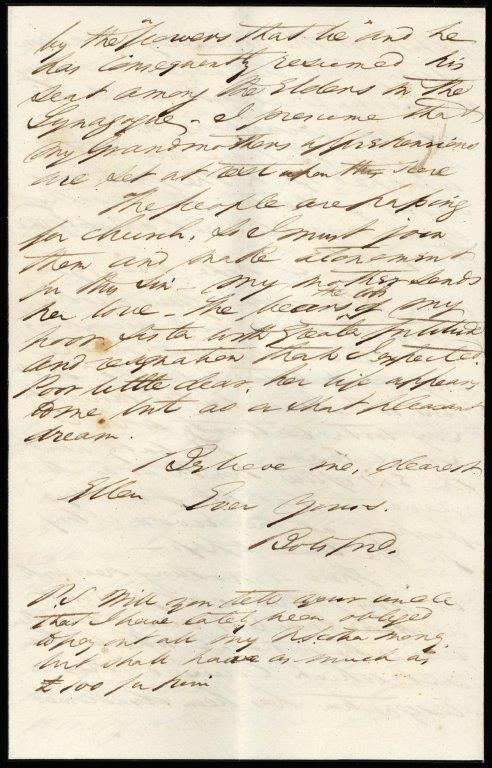 by the "powers that be" and he
has consequently resumed his
seat among the Elders in the
Synagogue - I presume that
my Grandmothers apprehensions
are set at rest upon this
The people are
for church, so I must join
them and make atonement
for this sin - my mother sends
her love - She bears the of my
poor sister with greater fortitude
and resignation than I expected.
Poor little dear, her life appears
to me but as a short pleasant
dream.
Believe me, dearest
Ellen Ever Yours.
P.S. Will you tell your uncle
that I have lately been obliged
to pay out all my money
but shall have as much as
£100 for him